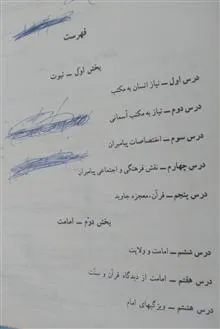 فهرست
بخش اوّل ــ نبوت
درس اول ــ نیاز انسان به مکتب
درس دوم ــ نیاز به مکتب آسمانی
درس سوم ــ اختصاصات پیامبران
درس چهارم ــ نقش فرهنگی و اجتماعی پیامبران
درس پنجم ــ قرآن، معجزه جاوید
بخش دوّم ــ امامت
درس ششم ــ امامت و ولایت
درس هفتم ــ امامت از دیدگاه قرآن و سنّت
درس هشتم ــ ویژگیهای امام